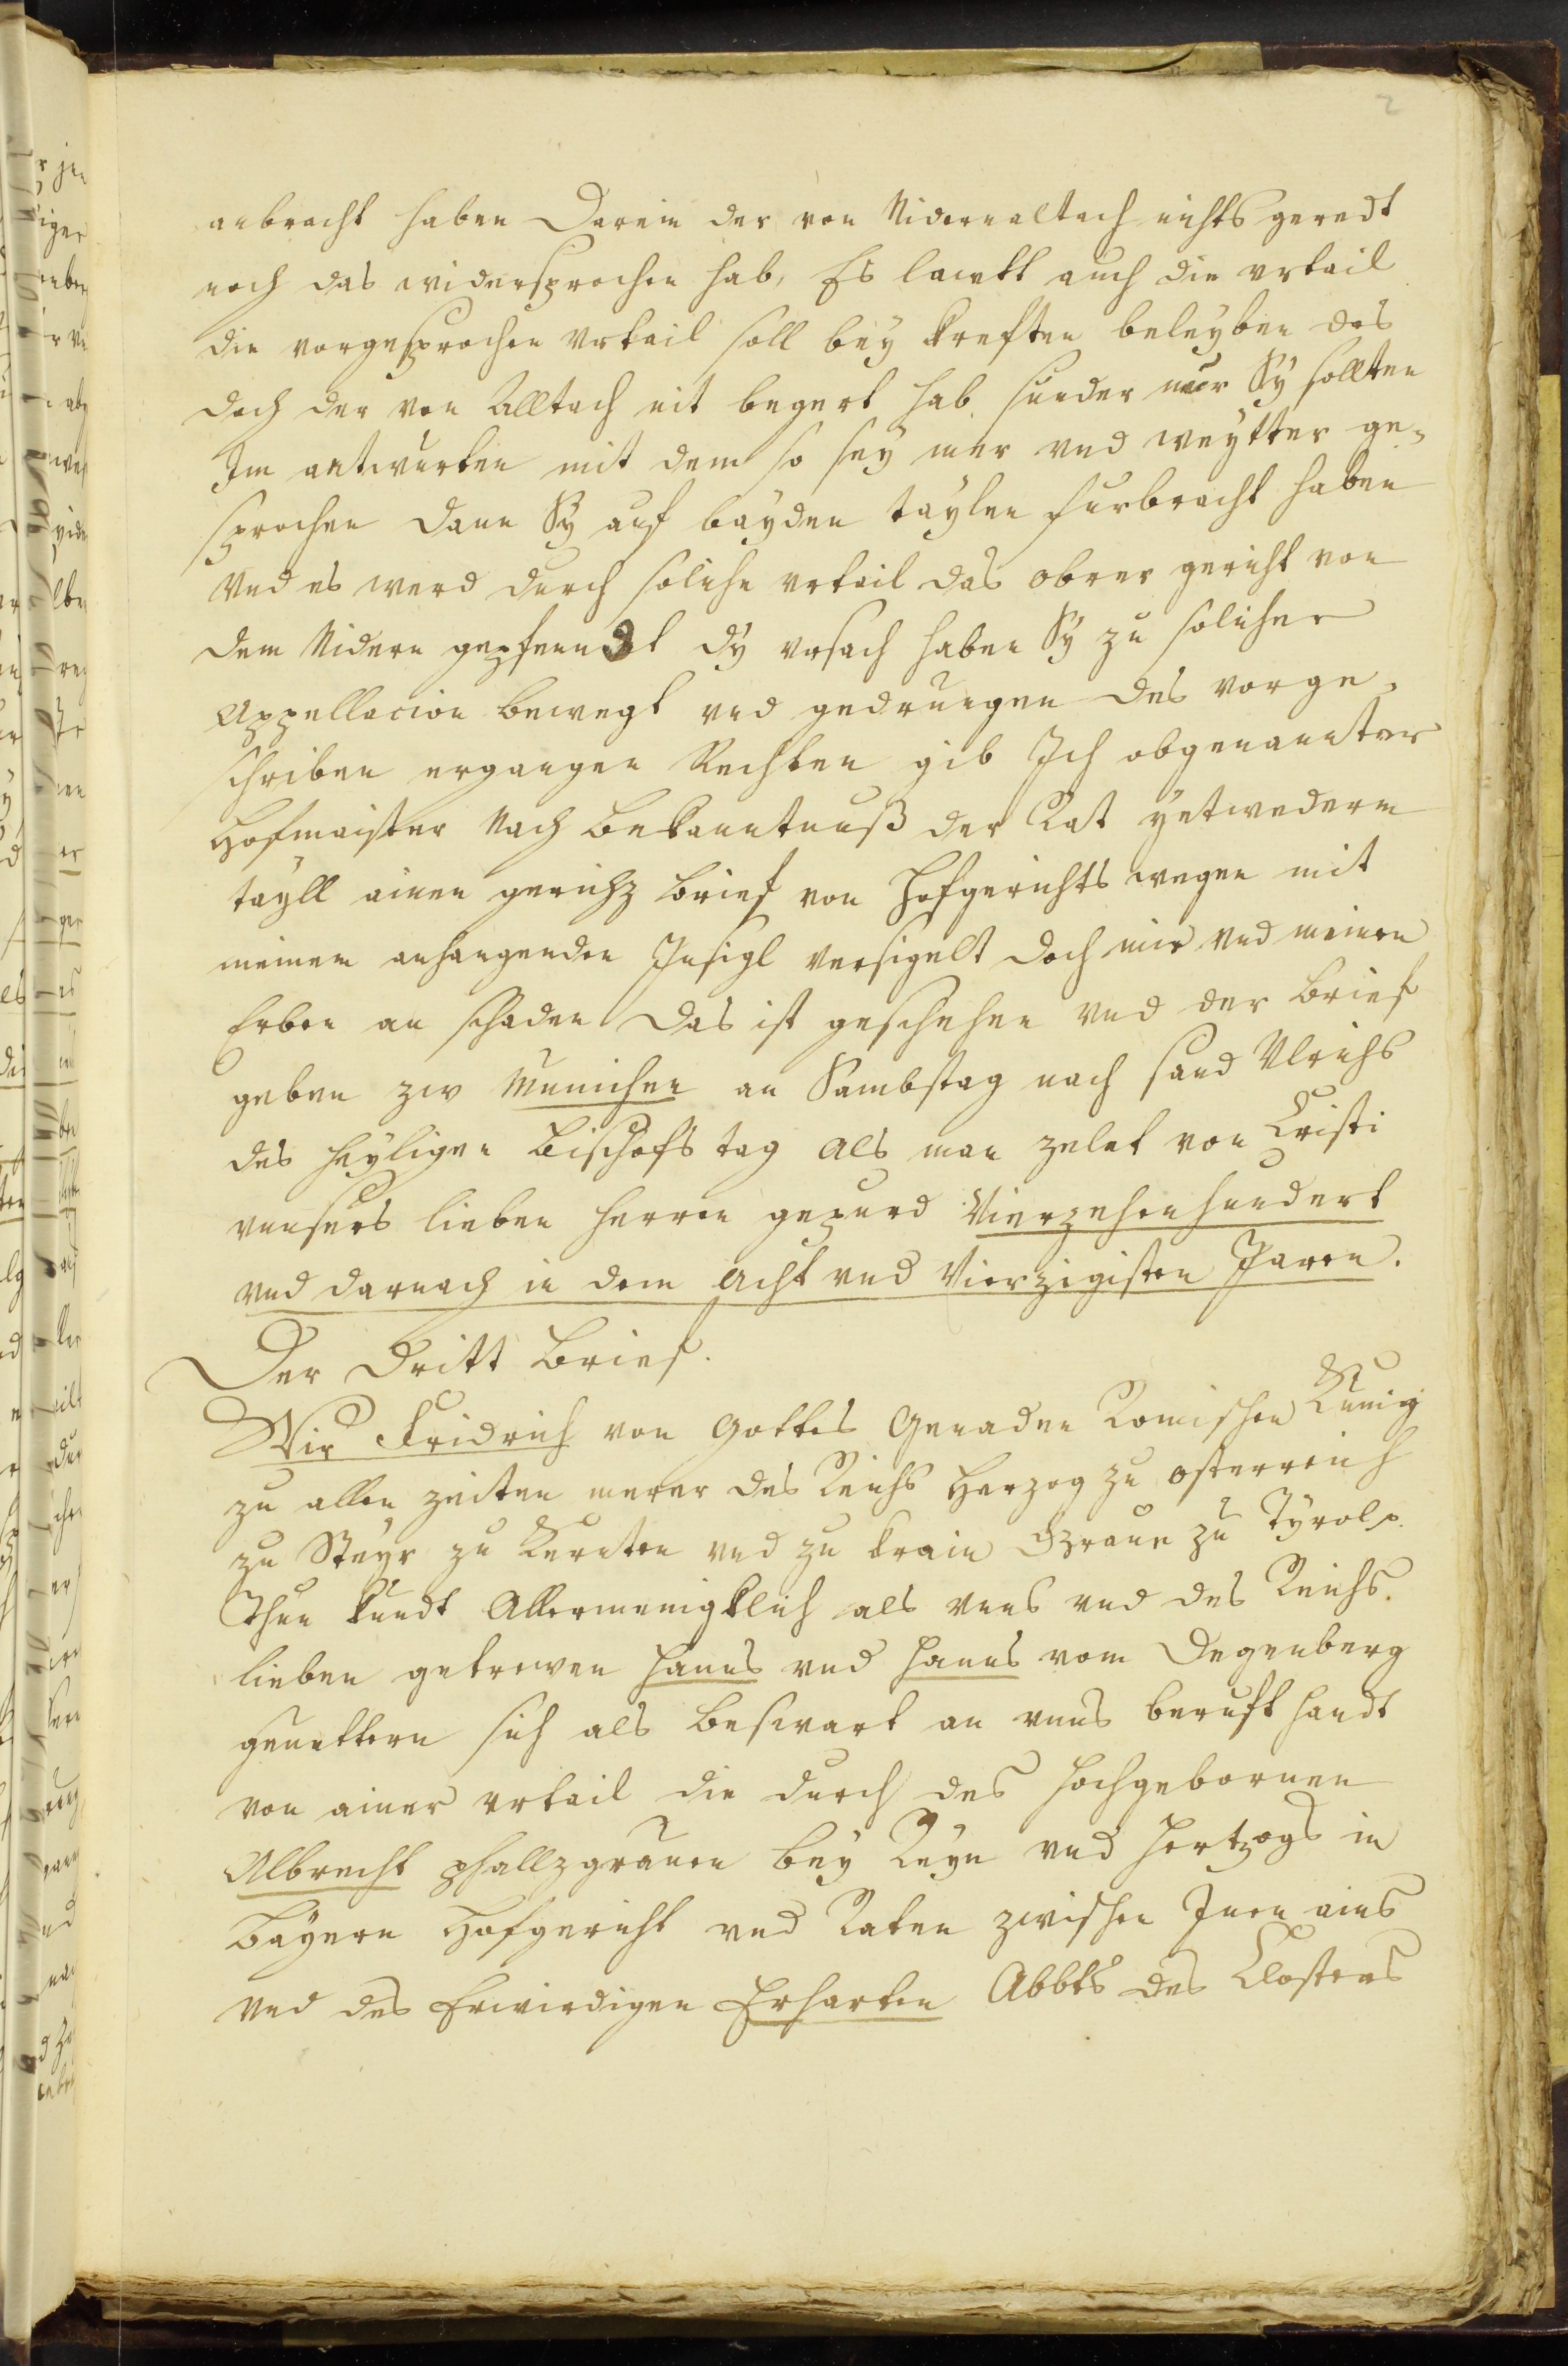 2
anbracht haben Darein der von Nidernaltach nichts geredt
noch das widersprochen hab, Es lawtt auch die vrtail
die vorgesprochen Vrtail soll bey kreften beleyben des
doch der von Alltach nit begert hab sunder nur Sy sollten
Im antwurten mit dem so sey mer vnd weytter ge-
sprochen dann Sy auf bayden taylen furbracht haben
Vnd es werd durch soliche vrtail das obrer gericht von
dem Nidern gepfenndt dy vrsach haben Sy zu solicher
Appellacion bewegt vnd gedrungen des vorge-
schriben ergangen Rechten gib Ich obgenannter
Hofmaister Nach Bekanntnuß der Rat yetwederm
tayll ainen gerichz brief von Hofgerichts wegen mit
meinem anhangenden Insigl versigelt doch mir vnd meinen
Erben an schaden Das ist geschehen vnd der brief
geben zw Munichen an Sambstag nach sand Ulrichs
des heyligen Bischofs tag Als man zelet von Cristi
vnnsers lieben herren gepurd Vierzehenhundert
vnd darnach in dem Acht vnd Vierzigisten Jaren.
Der Dritt Brief.
Wir Fridrich von Gottes Genaden Romischer Kunig
zu allen zeiten merer des Reichs Herzog zu osterreich
zu Steyr zu Kernten vnd zu krain Graue zu Tyrol p.
Thun kundt Allermenigklich als vnns vnd des Reichs
lieben getrewen Hanns vnd Hanns vom Degenberg
geuettern sich als beswart an vnns beruft handt
von ainer vrtail die durch des Hochgebornen
Albrecht phallzgrauen bey Reyn vnd Hertzogs in
Bayern Hofgericht vnd Raten zwischen Inen ains
vnd des Erwirdigen Erharten Abbts des Closters